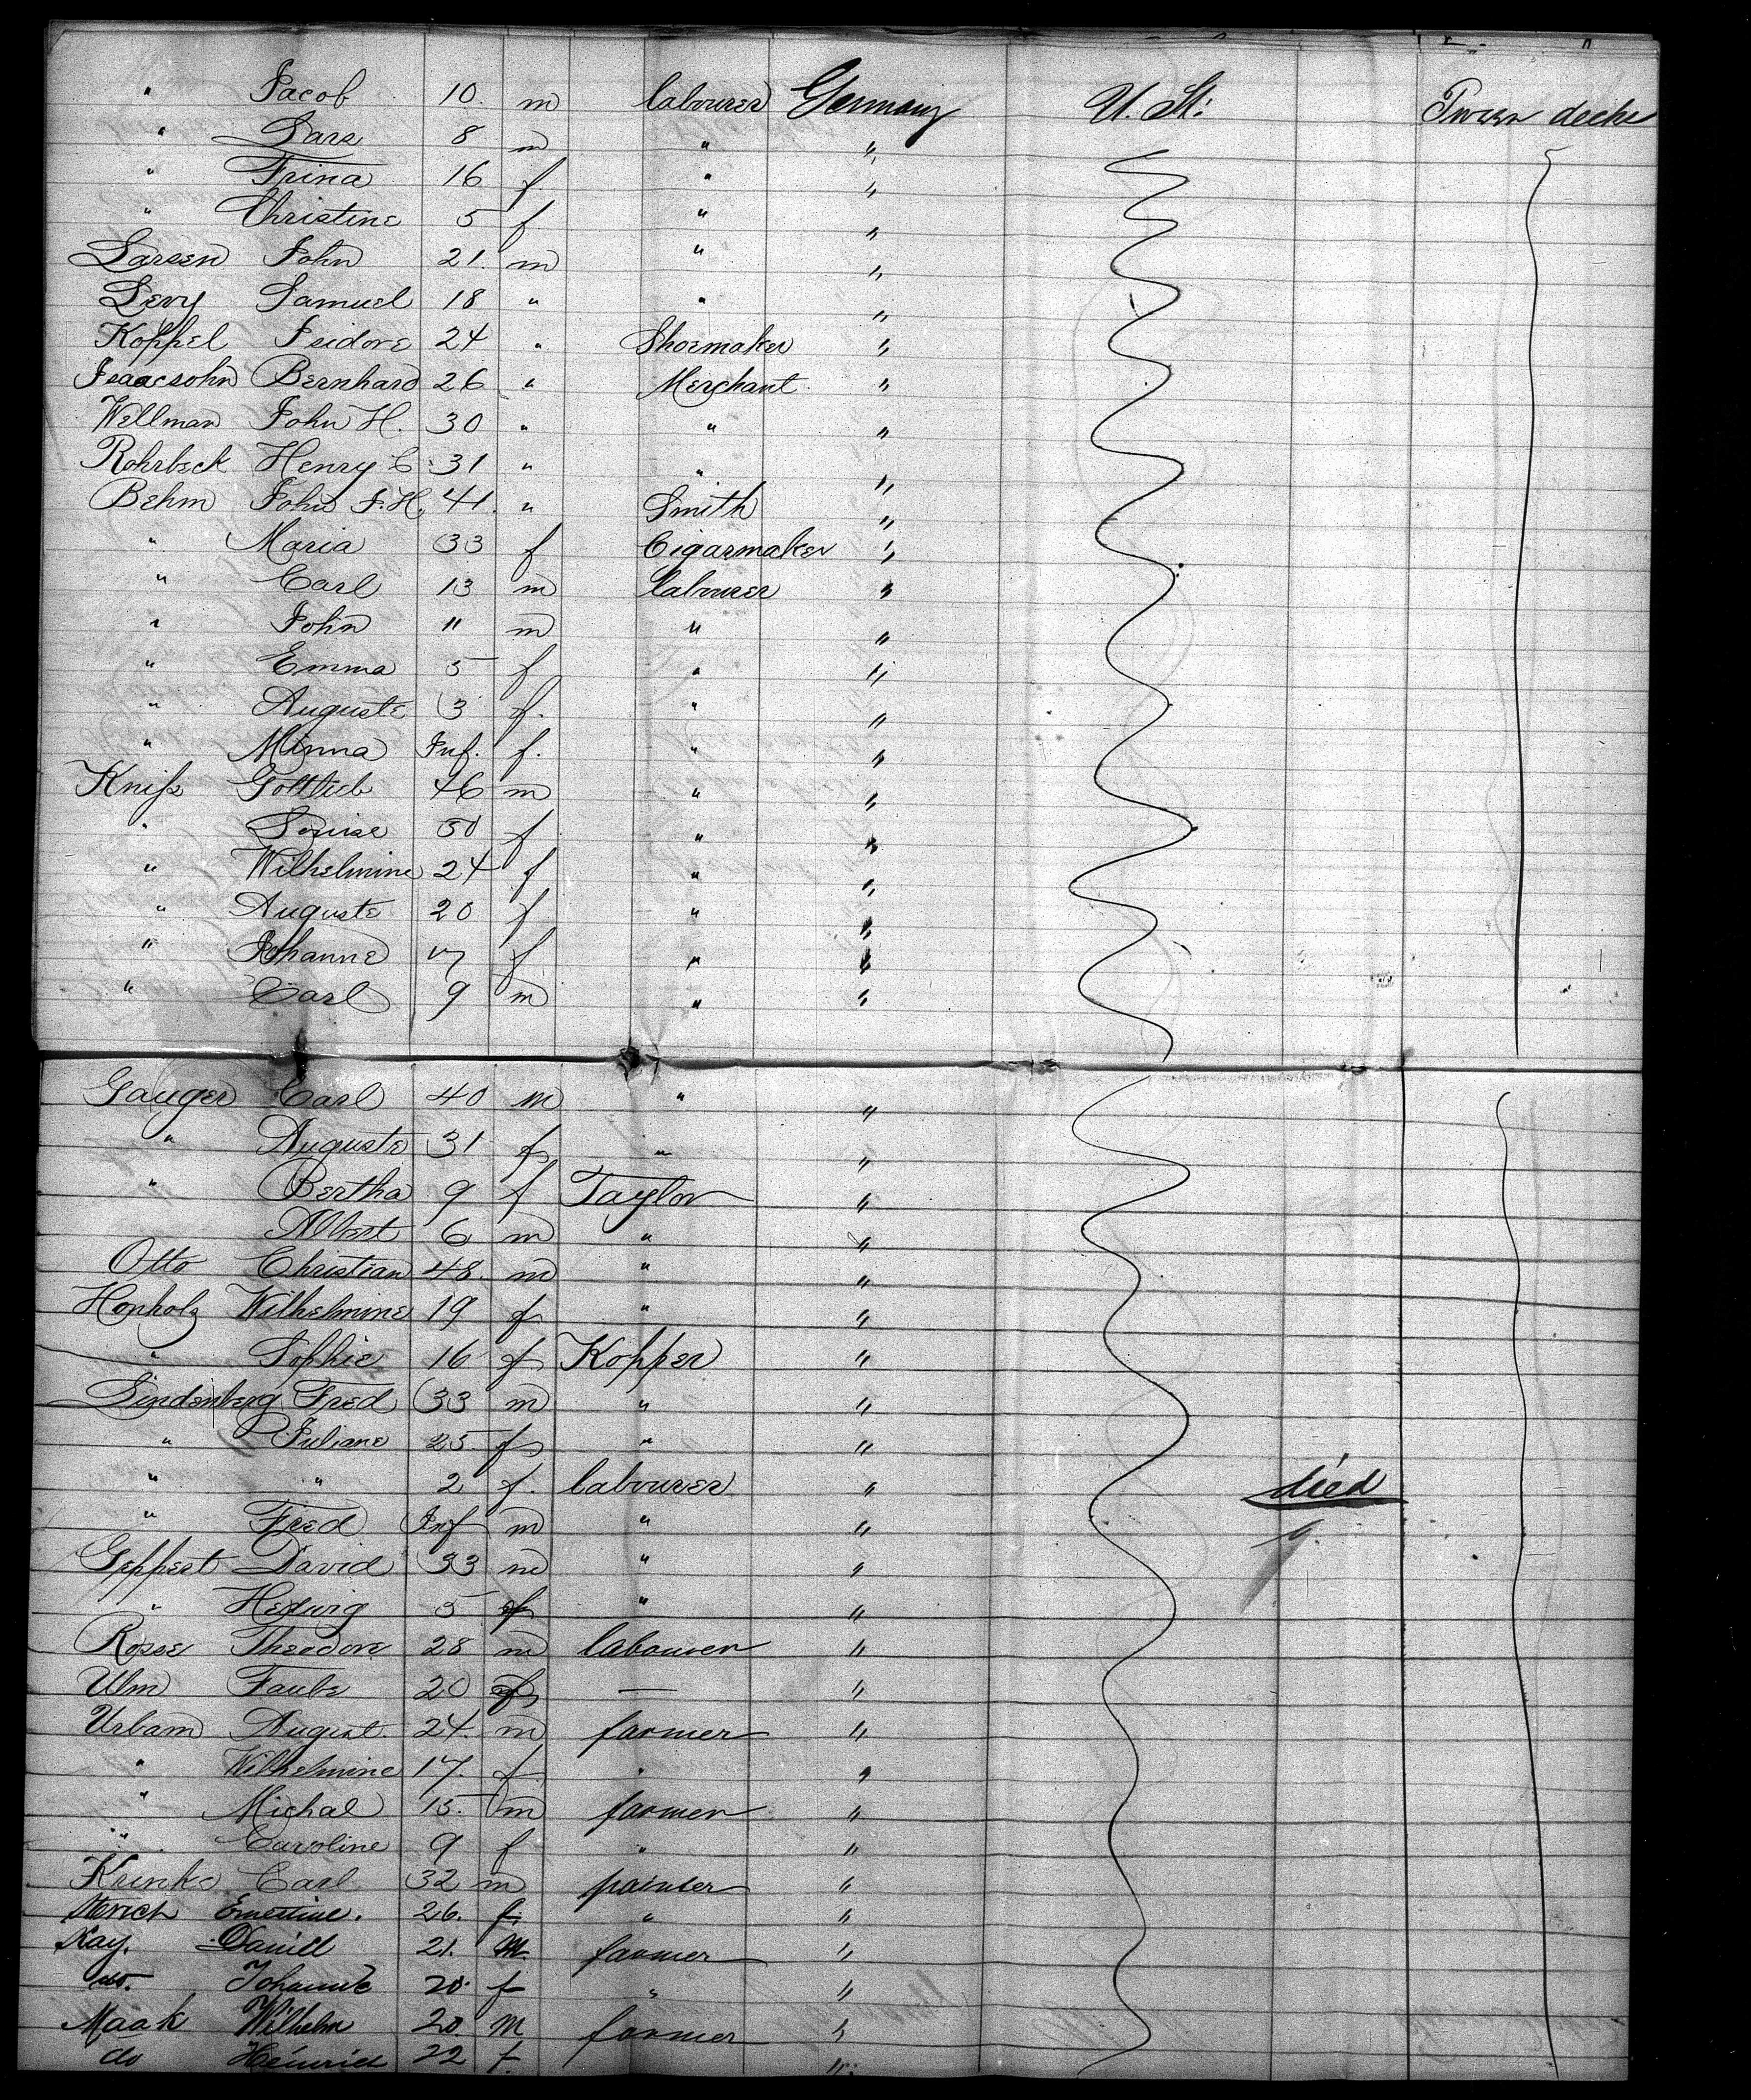 " Jacob 10. m labourer Germany U. St: Tween decks
" Lars 8 m " "
" Trina 16 f " "
" Christine 5 f. " "
Larsen John 21. m " "
Levy Samuel 18 " " "
Koppel Isidore 24 " Shoemaker "
Isaacsohn Bernhard 26 " Merchant "
Wellman John H. 30 " " "
Rohrbeck Henry C. 31 " " "
Behm John J. H. 41. " Smith "
" Maria 33 f Cigarmaker "
" Carl 13 m labourer "
" John 11 m " "
" Emma 5 f " "
" Auguste 3 f. " "
" Minna Inf. f. " "
Kniß Gottlieb 46 m " "
" Louise 50 f " "
" Wilhelmine 24 f " "
" Auguste 20 f " "
" Johanne 17 f " "
" Carl 9 m " "
Gauger Carl 40 m " "
" Auguste 31 f " "
" Bertha 9 f Taylor "
Albert 6 m " "
Otto Christian 48. m " "
Honholz Wilhelmine 19 f " "
" Sophie 16 f Kopper "
Lindenberg Fred 33 m " "
" Juliane 25. f " "
" " 2 f. labourer " died
" Fred Inf m " "
Geppert David 33 m " "
" Hedwig 5 f " "
Rosse Theodore 28 m labourer "
Ulm Taube 20 f — "
Urbam August. 24. m farmer "
" Wilhelmine 17. f " "
" Michal 15. m farmer "
" Caroline 9 f " "
Krinke Carl 32 m painter "
Ernestine. 26. f. " "
Kay. Daniel 21. M. farmer "
do. Johanne 20. f " "
Maak Wilhelm 20. M farmer "
do Heinrich 22 f. "